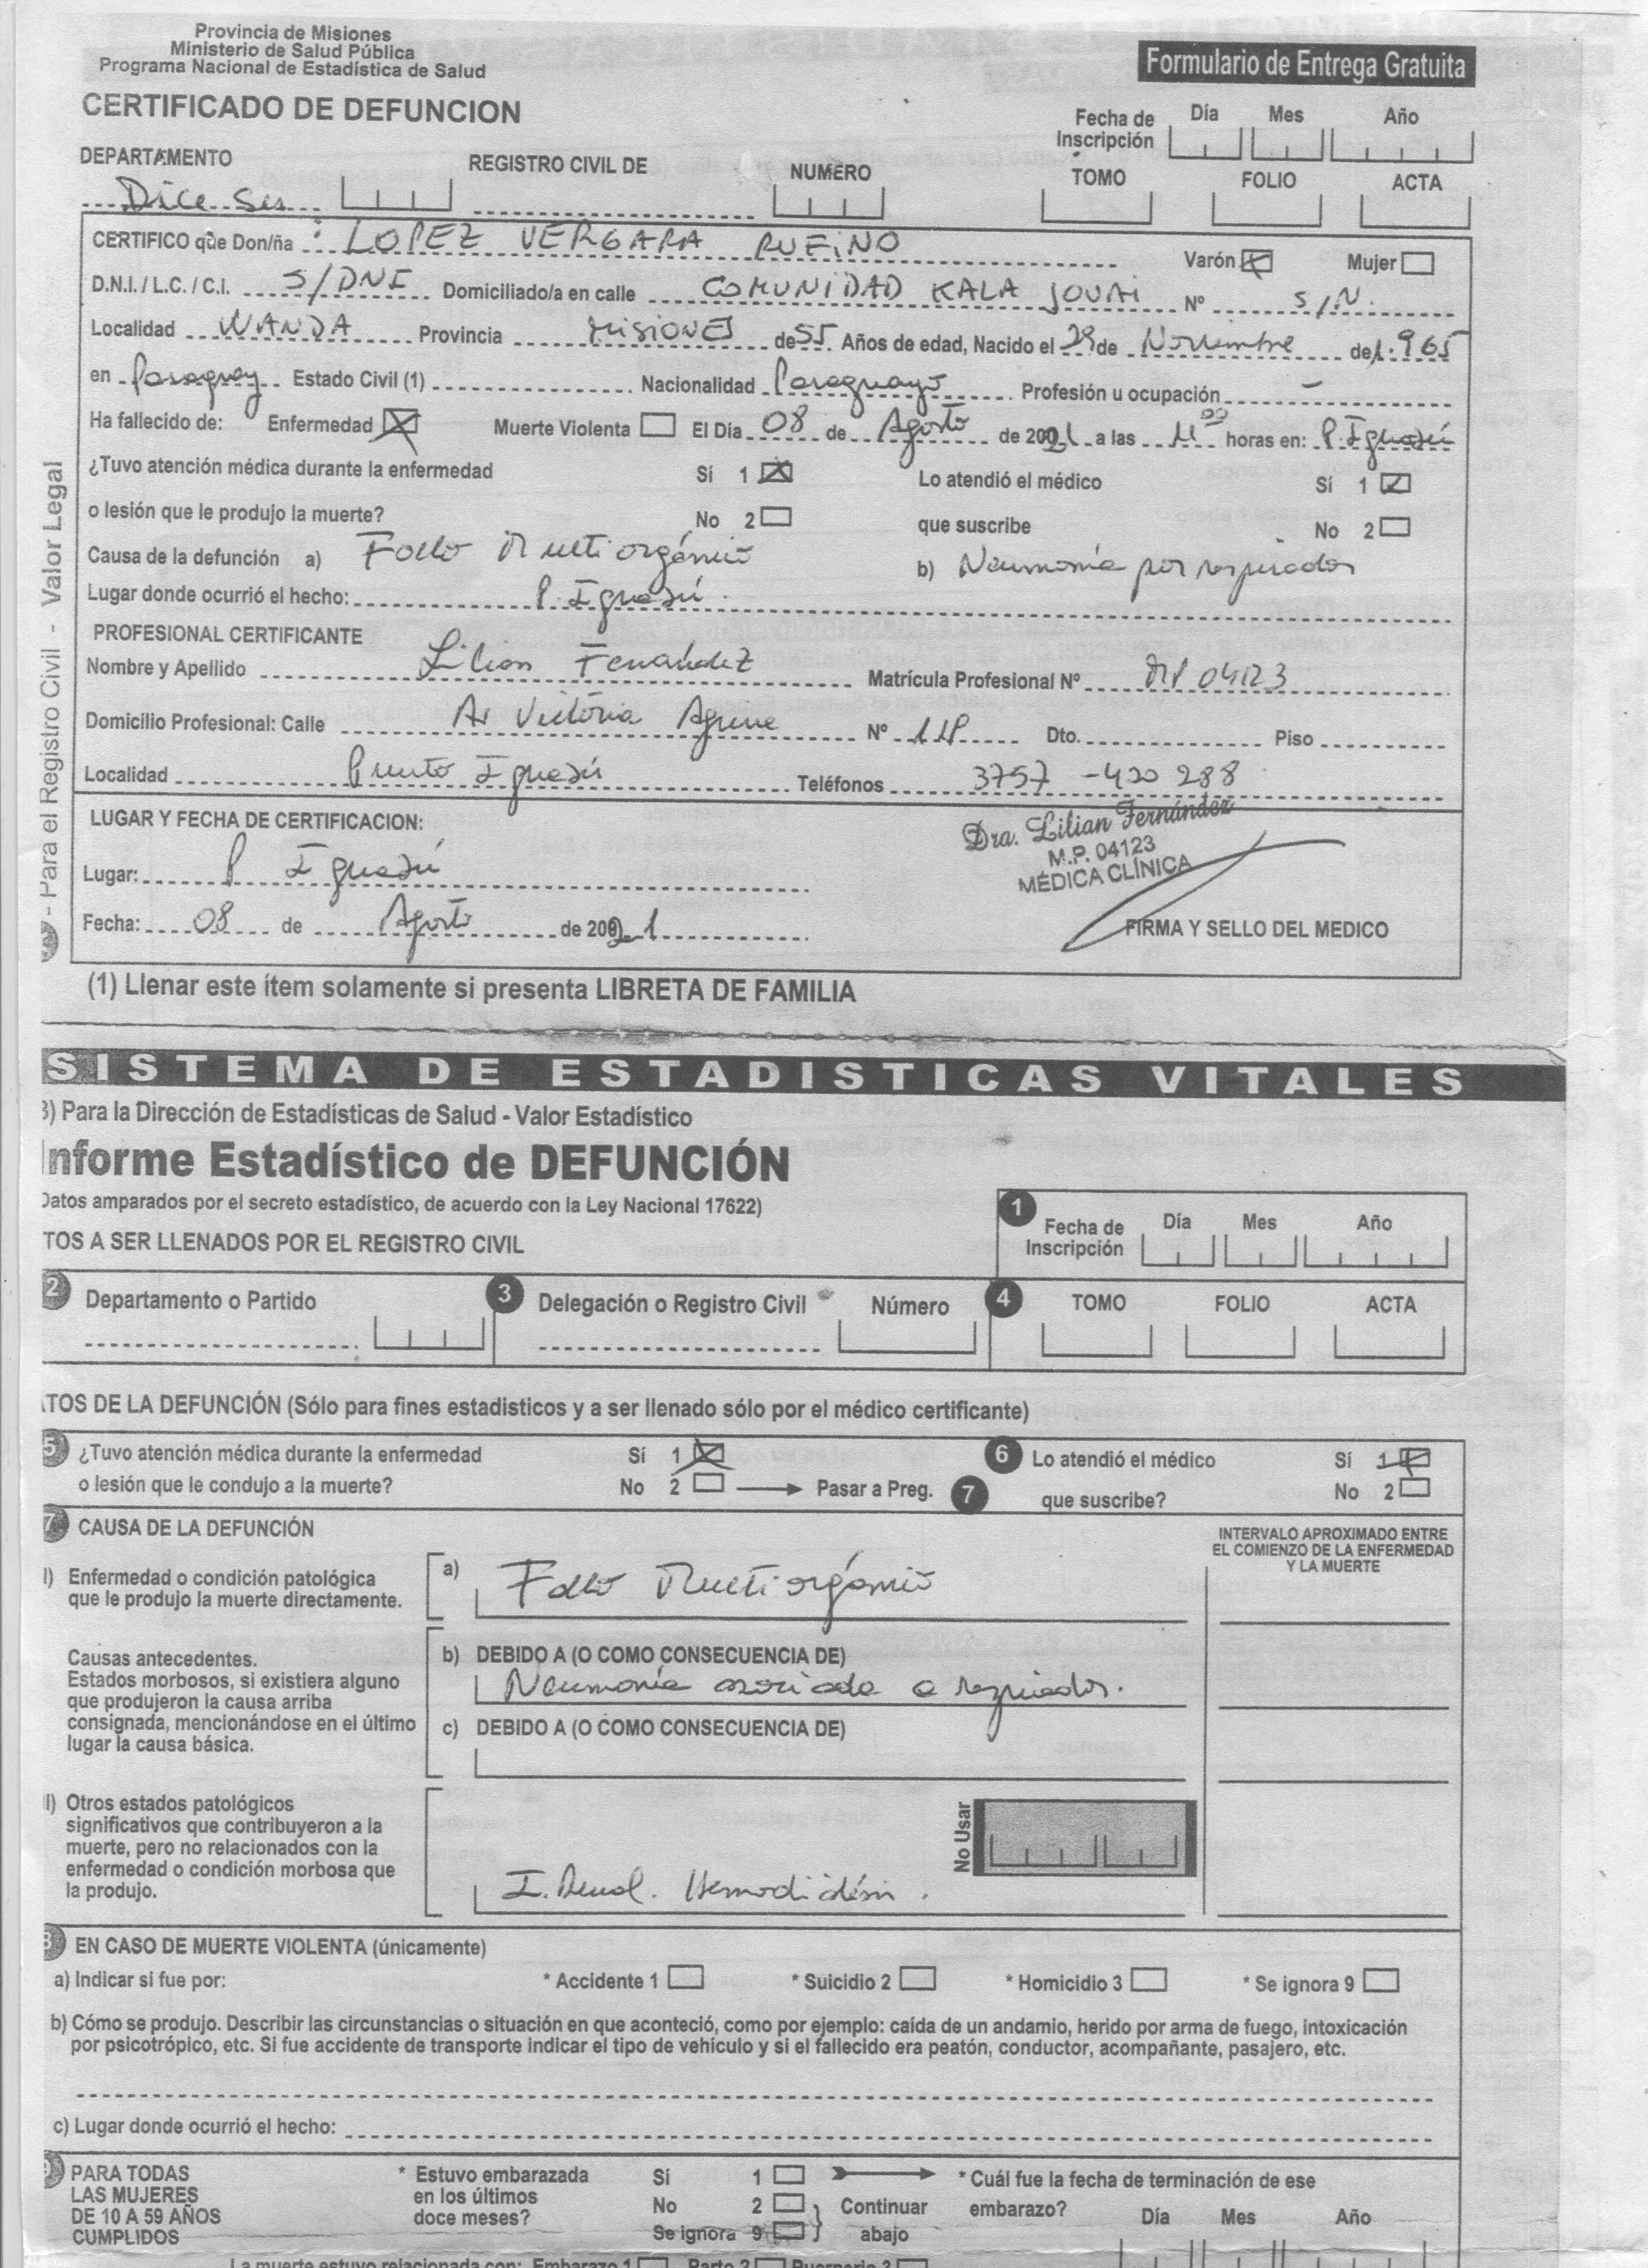 Provincia de Misiones
Ministerio de Salud Pública
Programa Nacional de Estadística de Salud
Formulario de Entrega Gratuita
CERTIFICADO DE DEFUNCION
Fecha de Inscripción Día Mes Año
DEPARTAMENTO REGISTRO CIVIL DE NUMERO TOMO FOLIO ACTA
Dice Ser
CERTIFICO que Don/ña : LOPEZ VERGARA RUFINO Varón Mujer
D.N.I. / L.C. / C.I. S/DNI Domiciliado/a en calle COMUNIDAD KALA Nº S/N.
Localidad WANDA Provincia MISIONES de 55 Años de edad, Nacido el 29 de Noviembre de 1.965
en Paraguay Estado Civil (1) Nacionalidad Paraguayo Profesión u ocupación -
Ha fallecido de: Enfermedad Muerte Violenta El Día 08 de Agosto de 2021 a las 11 00 horas en: P. Iguazú
¿Tuvo atención médica durante la enfermedad Sí 1 Lo atendió el médico Sí 1
o lesión que le produjo la muerte? No 2 que suscribe No 2
Causa de la defunción a) Fallo Multiorgánico b) Neumonía por respirador
Lugar donde ocurrió el hecho: P. Iguazú.
PROFESIONAL CERTIFICANTE
Nombre y Apellido Lilian Fernandez Matrícula Profesional Nº MP 04123
Domicilio Profesional: Calle Av Victoria Aguirre Nº Dto. Piso
Localidad Puerto Iguazú Teléfonos 3757 - 420 288
LUGAR Y FECHA DE CERTIFICACION:
Dra. Lilian Fernández
M.P. 04123
MÉDICA CLÍNICA
Lugar: P Iguazú
Fecha: 08 de Agosto de 2021 FIRMA Y SELLO DEL MEDICO
- Para el Registro Civil - Valor Legal
(1) Llenar este ítem solamente si presenta LIBRETA DE FAMILIA
SISTEMA DE ESTADISTICAS VITALES
3) Para la Dirección de Estadísticas de Salud - Valor Estadístico
Informe Estadístico de DEFUNCIÓN
Datos amparados por el secreto estadístico, de acuerdo con la Ley Nacional 17622)
TOS A SER LLENADOS POR EL REGISTRO CIVIL
1 Fecha de Inscripción Día Mes Año
2 Departamento o Partido 3 Delegación o Registro Civil Número 4 TOMO FOLIO ACTA
TOS DE LA DEFUNCIÓN (Sólo para fines estadisticos y a ser llenado sólo por el médico certificante)
5 ¿Tuvo atención médica durante la enfermedad Sí 1 6 Lo atendió el médico Sí 1
o lesión que le condujo a la muerte? No 2 Pasar a Preg. 7 que suscribe? No 2
7 CAUSA DE LA DEFUNCIÓN
INTERVALO APROXIMADO ENTRE
EL COMIENZO DE LA ENFERMEDAD
Y LA MUERTE
I) Enfermedad o condición patológica
que le produjo la muerte directamente.
a) Fallo Multiorgánico
Causas antecedentes.
Estados morbosos, si existiera alguno
que produjeron la causa arriba
consignada, mencionándose en el último
lugar la causa básica.
b) DEBIDO A (O COMO CONSECUENCIA DE)
Neumonía asociada a respirador.
c) DEBIDO A (O COMO CONSECUENCIA DE)
I) Otros estados patológicos
significativos que contribuyeron a la
muerte, pero no relacionados con la
enfermedad o condición morbosa que
la produjo.
I. Renal. Hemodiálisis.
No Usar
8 EN CASO DE MUERTE VIOLENTA (únicamente)
a) Indicar si fue por: * Accidente 1 * Suicidio 2 * Homicidio 3 * Se ignora 9
b) Cómo se produjo. Describir las circunstancias o situación en que aconteció, como por ejemplo: caída de un andamio, herido por arma de fuego, intoxicación
por psicotrópico, etc. Si fue accidente de transporte indicar el tipo de vehículo y si el fallecido era peatón, conductor, acompañante, pasajero, etc.
c) Lugar donde ocurrió el hecho:
9 PARA TODAS
LAS MUJERES
DE 10 A 59 AÑOS
CUMPLIDOS
* Estuvo embarazada
en los últimos
doce meses?
Sí 1
No 2
Se ignora 9
Continuar
abajo
* Cuál fue la fecha de terminación de ese
embarazo? Día Mes Año
La muerte estuvo relacionada con: Embarazo 1 Parto 2 Puerperio 3